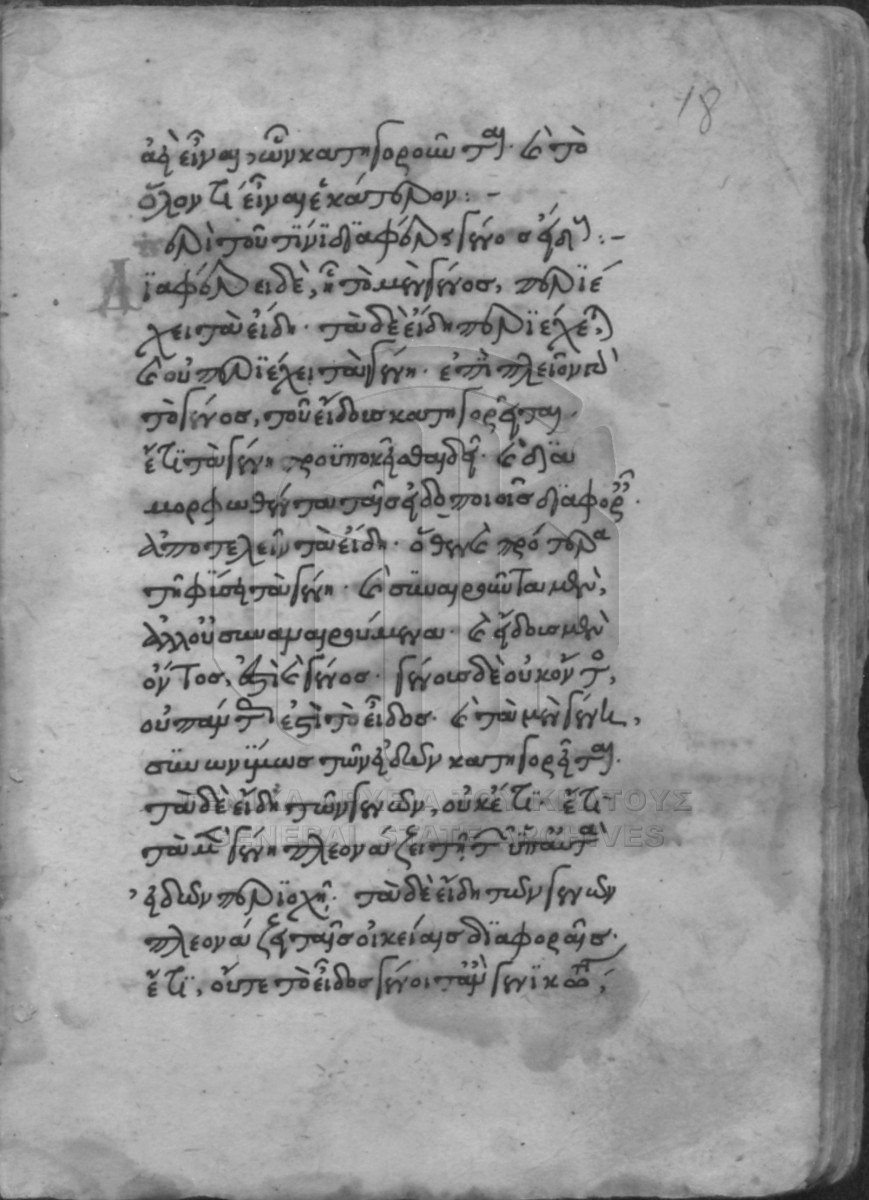 18
ἀεὶ εἶναι, ὧν κατηγοροῦνται· καὶ τὸ
ὅλόν τι εἶναι ἑκάτερον :–
περὶ τοῦ τίνι διαφέρει γένος εἴδους :–
Διαφέρει δὲ, ᾗ τὸ μὲν γένος, περιέ
χει τὰ εἴδη· τὰ δὲ εἴδη περιέχεται
καὶ οὐ περιέχει τὰ γένη· ἐπὶ πλεῖον γὰρ
τὸ γένος, τοῦ εἴδους κατηγορεῖται
ἔτι τὰ γένη προϋποκεῖσθαι δεῖ· καὶ δια
μορφωθέντα ταῖς εἰδοποιοῖς διαφοραῖς·
ἀποτελεῖν τὰ εἴδη· ὅθεν καὶ πρότερα
τῇ φύσει τὰ γένη· καὶ συναιροῦντα μὲν,
ἀλλ' οὐ συναναιρούμενα· καὶ εἴδους μὲν
ὄντος, ἔστι καὶ γένος· γένους δὲ οὐκ ὄντος,
οὐ πάντως ἐστὶ τὸ εἶδος· καὶ τὰ μὲν γένη,
συνωνύμως τῶν εἰδῶν κατηγορεῖται·
τὰ δὲ εἴδη τῶν γενῶν, οὐκέτι· ἔτι
τὰ μὲν γένη πλεονάζει τῇ τῶν ὑπ' αὐτὰ
εἰδῶν περιοχῇ· τὰ δὲ εἴδη τῶν γενῶν
πλεονάζει ταῖς οἰκείαις διαφοραῖς·
ἔτι, οὔτε τὸ εἶδος γένοιτ' ἂν γενικώτατον,
ΓΕΝΙΚΑ ΑΡΧΕΙΑ ΤΟΥ ΚΡΑΤΟΥΣ
GENERAL STATE ARCHIVES